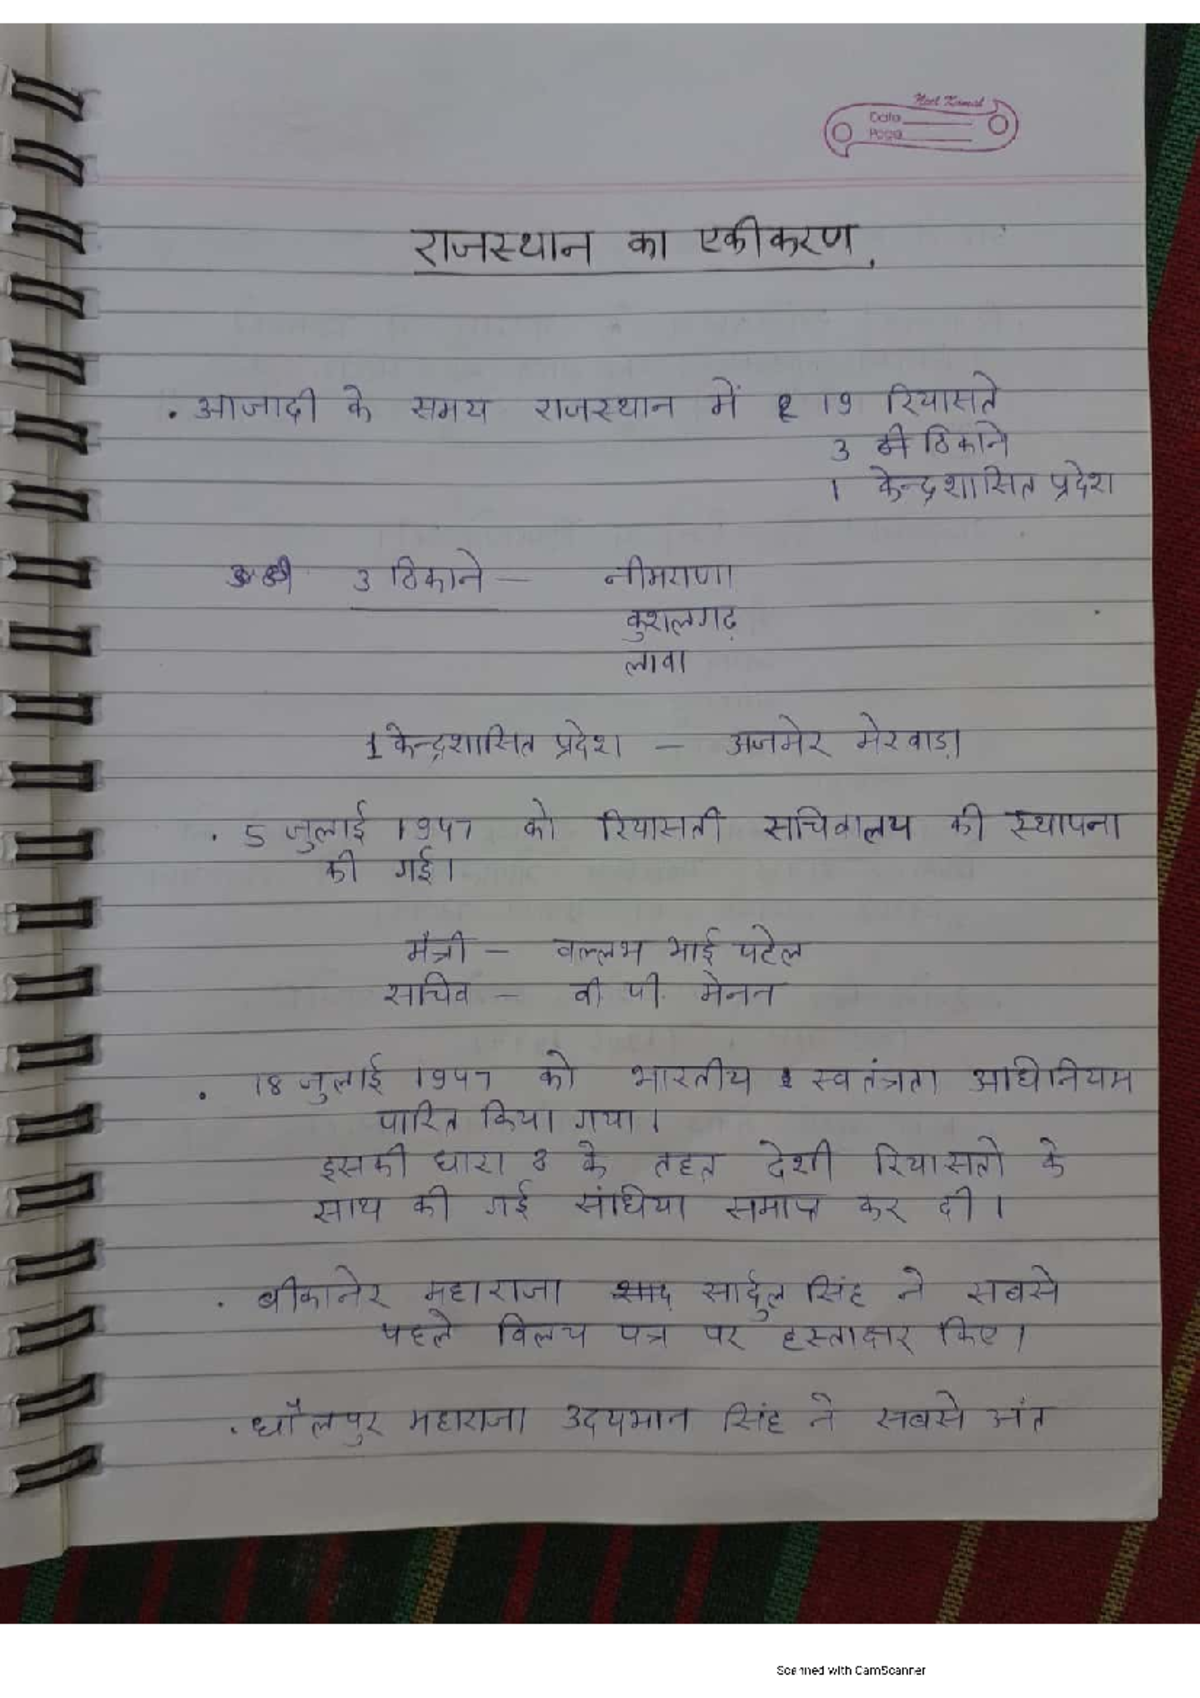 Neel Kamal
Date
Page
राजस्थान का एकीकरण
. आजादी के समय राजस्थान में 19 रियासते
3 ठिकाने
1 केन्द्रशासित प्रदेश
3 ठिकाने — नीमराणा
कुशलगढ़
लावा
1 केन्द्रशासित प्रदेश — अजमेर मेरवाड़ा
. 5 जुलाई 1947 को रियासती सचिवालय की स्थापना
की गई।
मंत्री — वल्लभ भाई पटेल
सचिव — वी पी. मेनन
. 18 जुलाई 1947 को भारतीय स्वतंत्रता अधिनियम
पारित किया गया।
इसकी धारा 8 के तहत देशी रियासतो के
साथ की गई संधिया समाप्त कर दी।
. बीकानेर महाराजा सार्दुल सिंह ने सबसे
पहले विलय पत्र पर हस्ताक्षर किए।
. धौलपुर महाराजा उदयभान सिंह ने सबसे अंत
Scanned with CamScanner